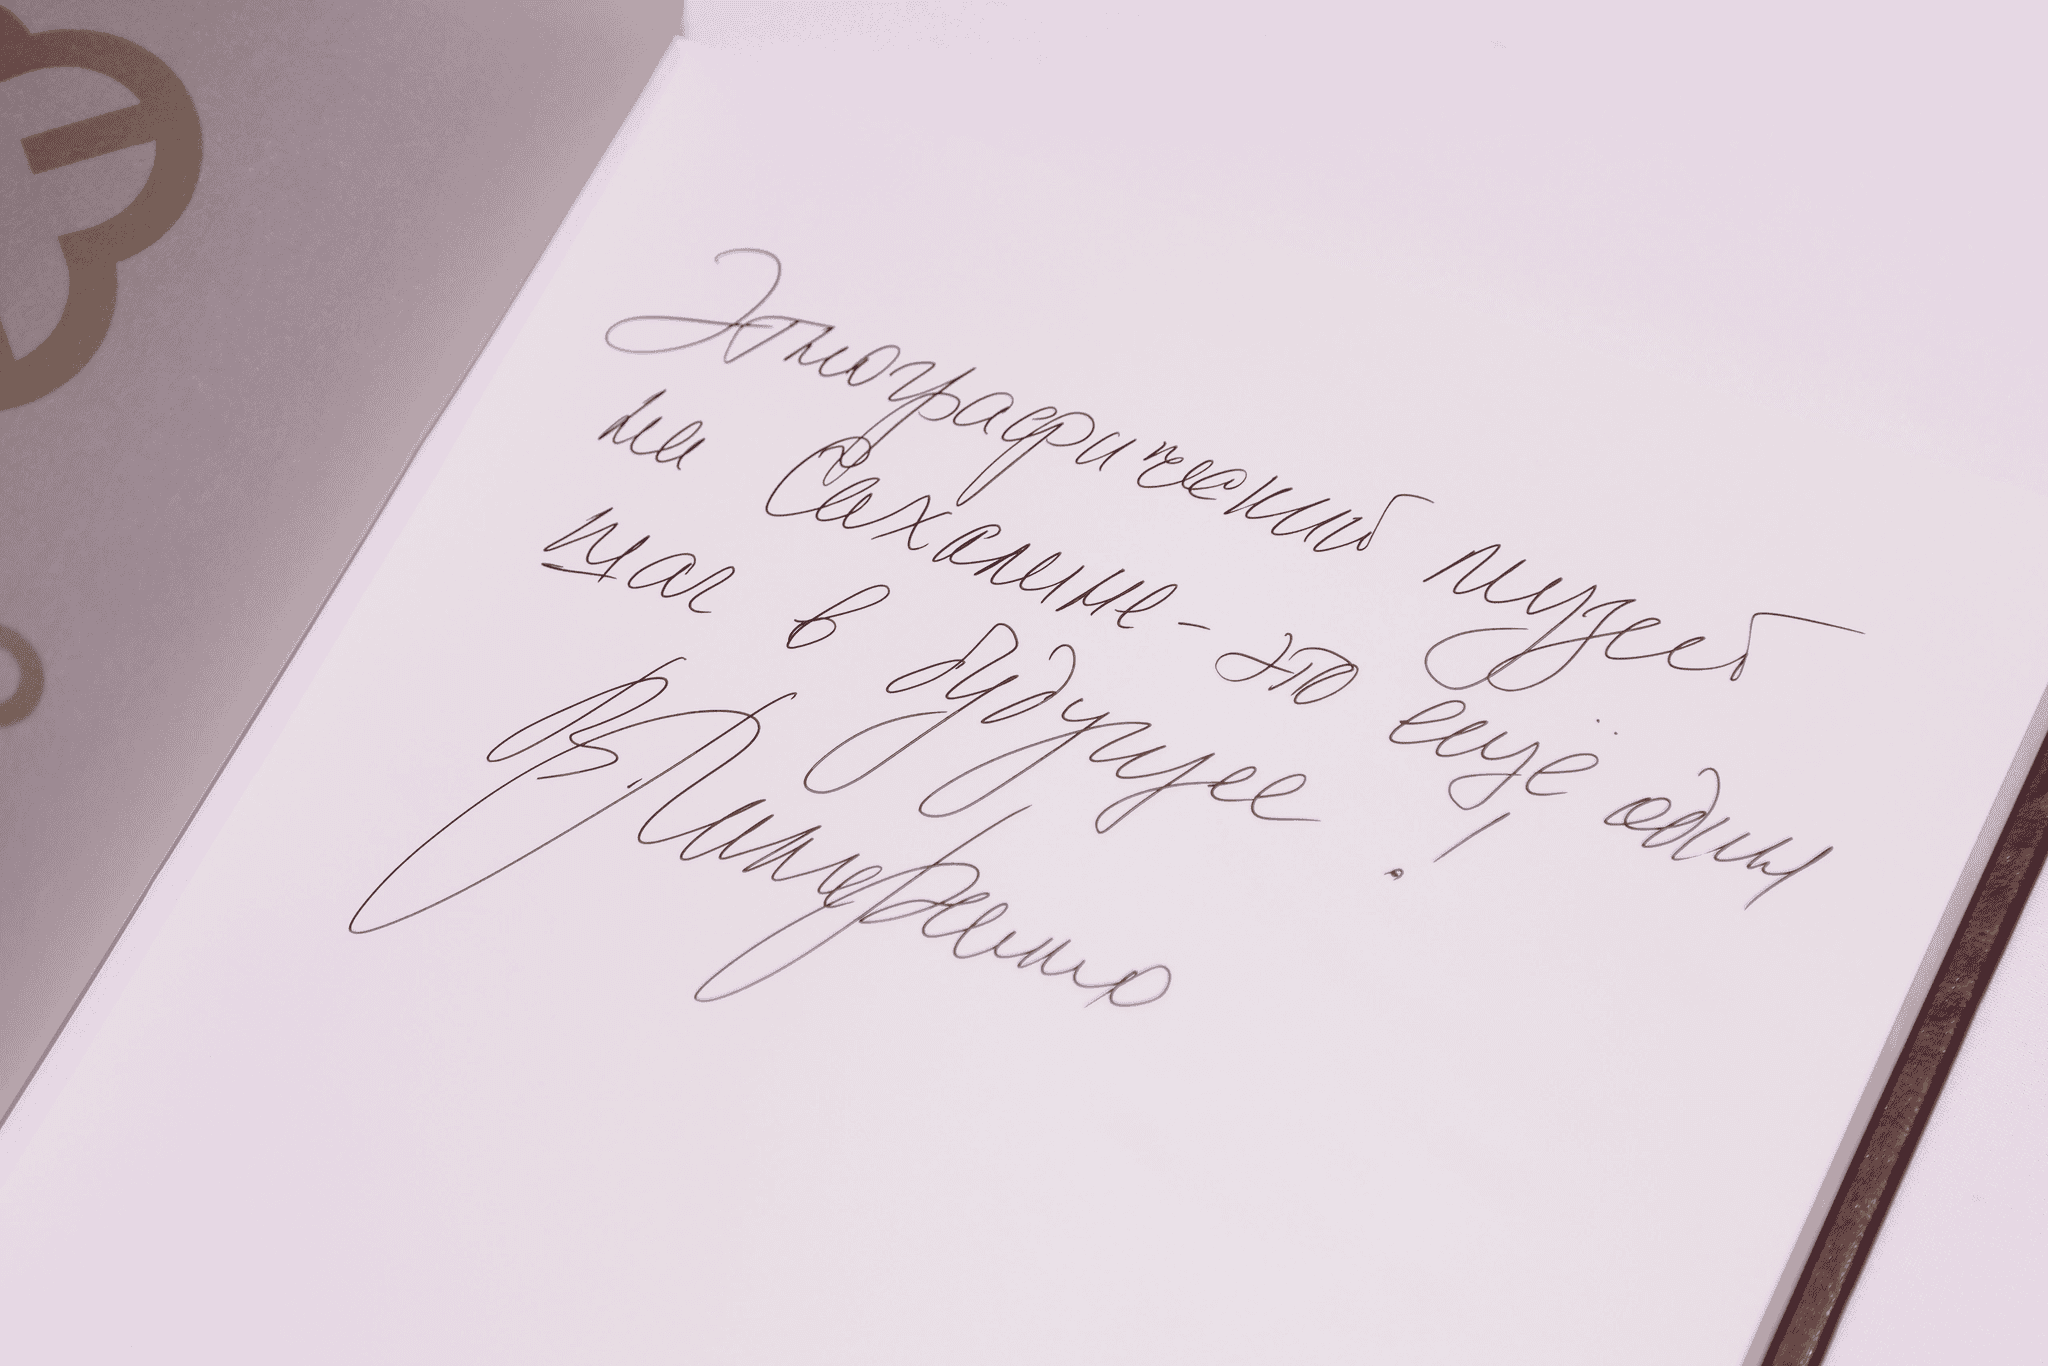 Этнографический музей
на Сахалине - это ещё один
шаг в будущее!